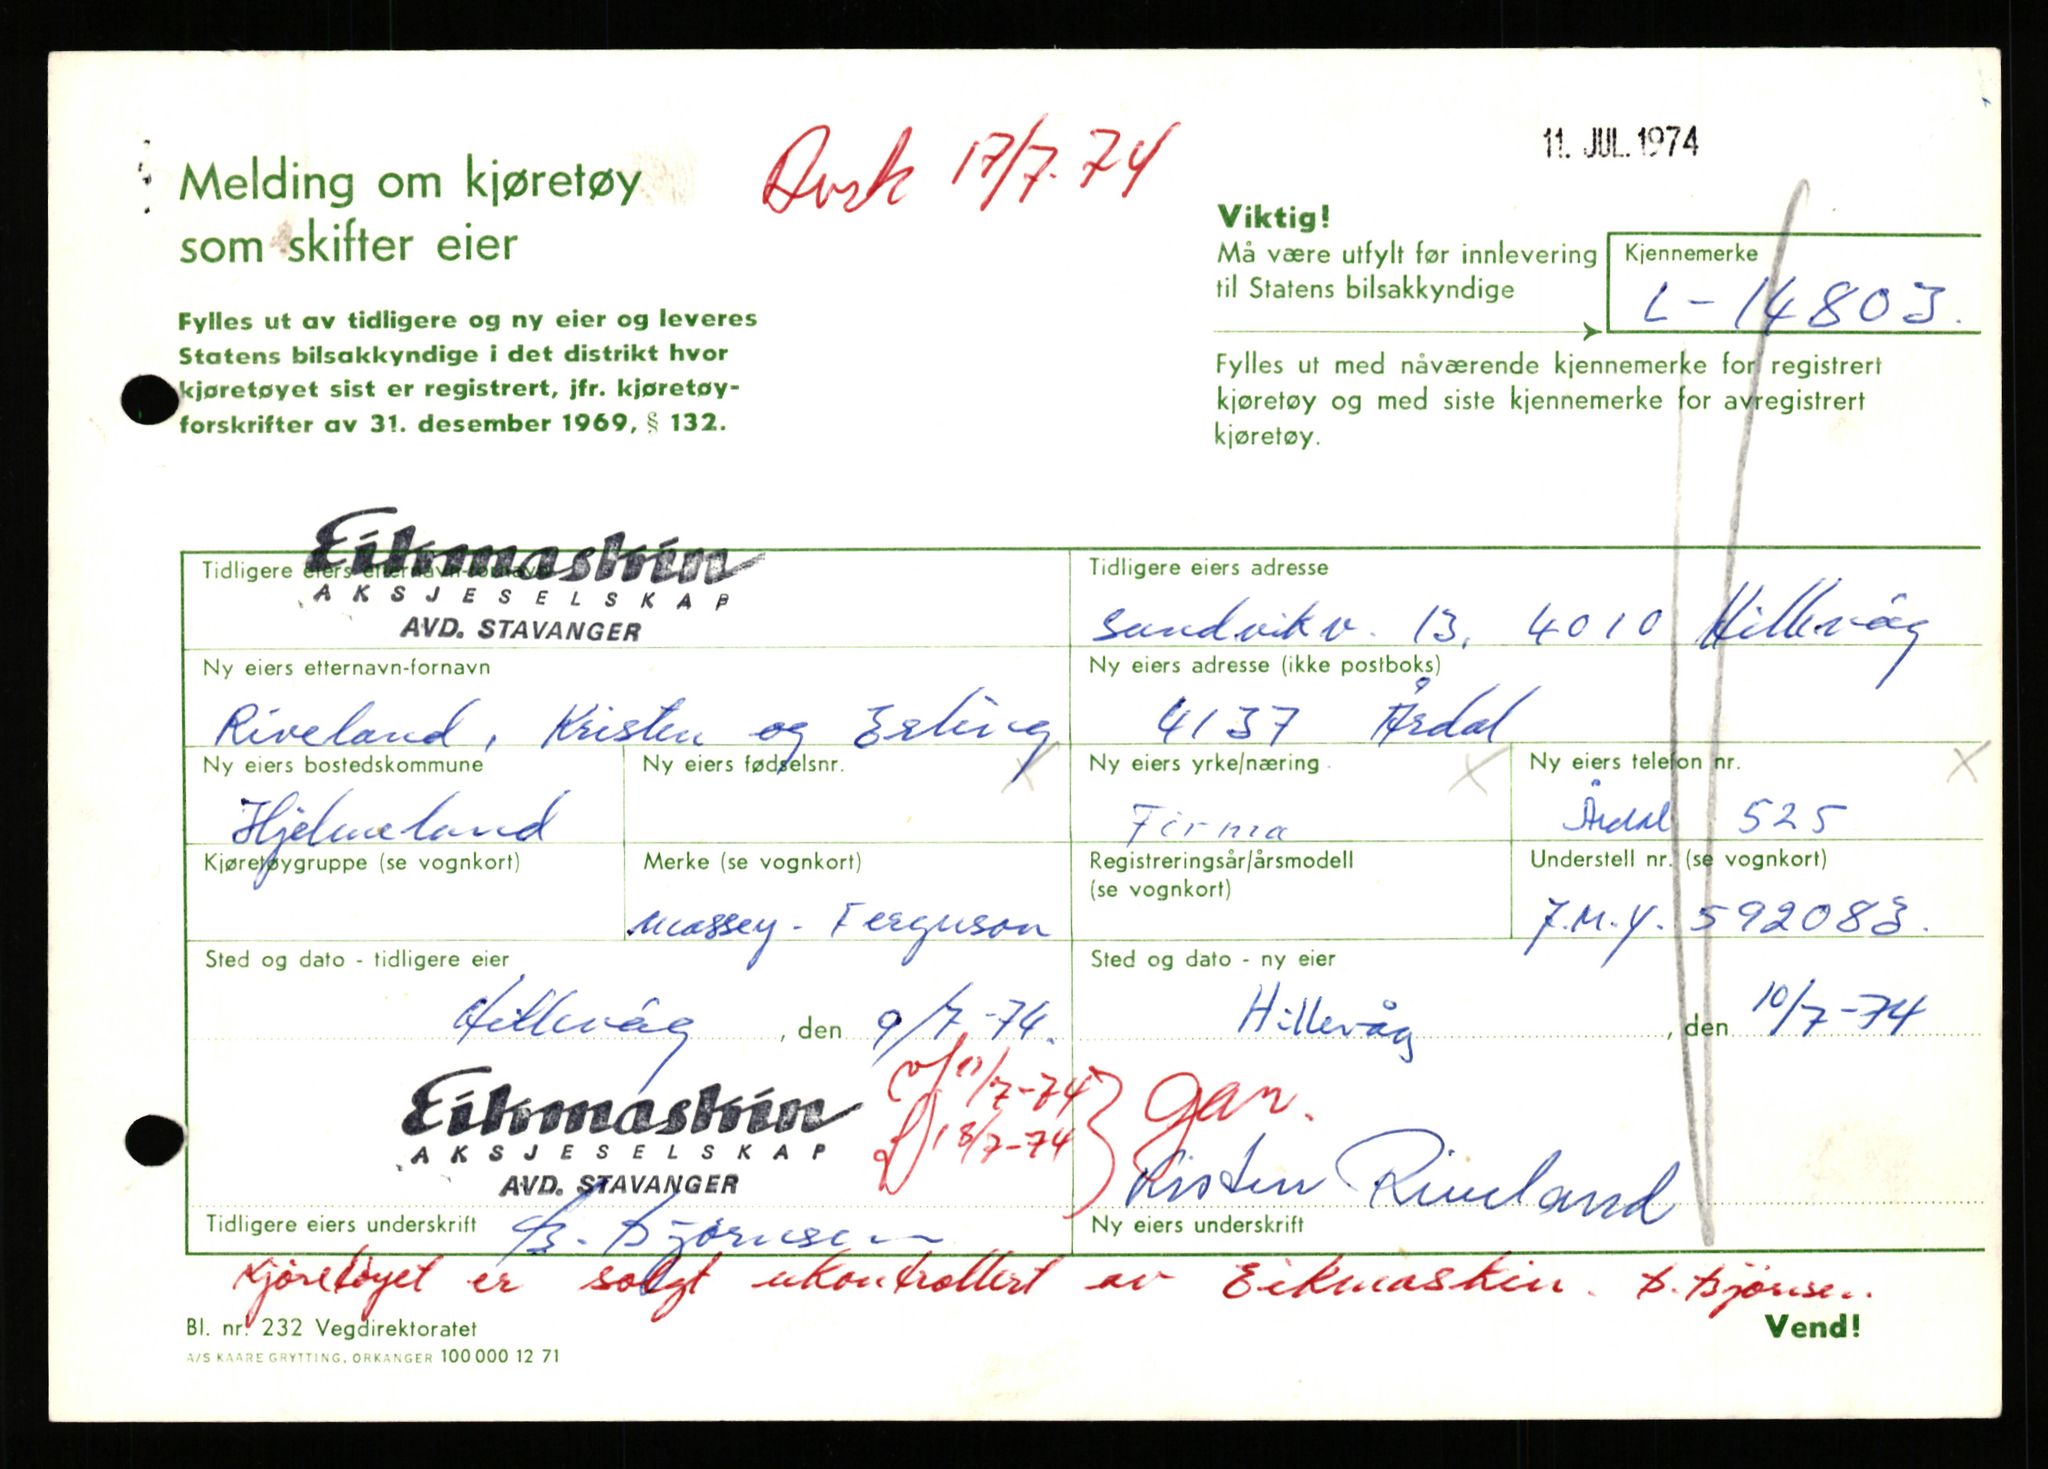 11. JUL. 1974
Avsk 17/7.74
Melding om kjøretøy
som skifter eier
Fylles ut av tidligere og ny eier og leveres
Statens bilsakkyndige i det distrikt hvor
kjøretøyet sist er registrert, jfr. kjøretøy-
forskrifter av 31. desember 1969, § 132.
Viktig!
Må være utfylt før innlevering
til Statens bilsakkyndige
Kjennemerke
L-14803.
Fylles ut med nåværende kjennemerke for registrert
kjøretøy og med siste kjennemerke for avregistrert
kjøretøy.
Tidligere eiers etternavn-fornavn
Eikmaskin
AKSJESELSKAP
AVD. STAVANGER
Tidligere eiers adresse
Sandvikv. 13, 4010 Hillevåg
Ny eiers etternavn-fornavn
Riveland, Kristen og Erling
Ny eiers adresse (ikke postboks)
4137 Årdal
Ny eiers bostedskommune
Hjelmeland
Ny eiers fødselsnr.
X
Ny eiers yrke/næring
X
Firma
Ny eiers telefon nr.
X
Årdal 525
Kjøretøygruppe (se vognkort)
Merke (se vognkort)
Massey-Ferguson
Registreringsår/årsmodell
(se vognkort)
Understell nr. (se vognkort)
7.M.Y. 592083.
Sted og dato - tidligere eier
Hillevåg, den 9/7-74.
Sted og dato - ny eier
Hillevåg, den 10/7-74
Eikmaskin
AKSJESELSKAP
AVD. STAVANGER
11/7-74
18/7-74
gan.
Tidligere eiers underskrift
B. Bjørnsen
Kristen Riveland
Ny eiers underskrift
Kjøretøyet er solgt ukontrollert av Eikmaskin. B. Bjørnsen.
Bl. nr. 232 Vegdirektoratet
Vend!
A/S KAARE GRYTTING, ORKANGER 100 000 12 71